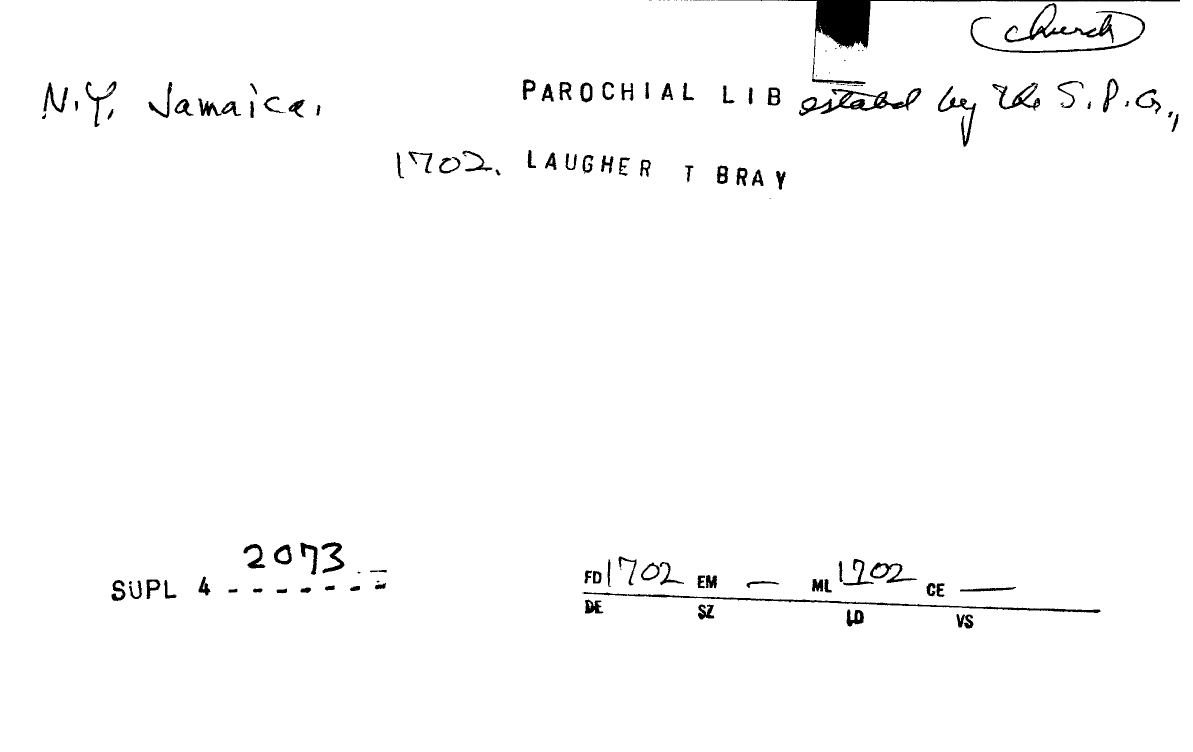 church
N.Y. Jamaica. PAROCHIAL LIB estabd by the S.P.G.,
1702. LAUGHER T BRAY
2073
SUPL 4 - - - - - - -
FD 1702 EM — ML 1702 CE —
DE SZ LD VS